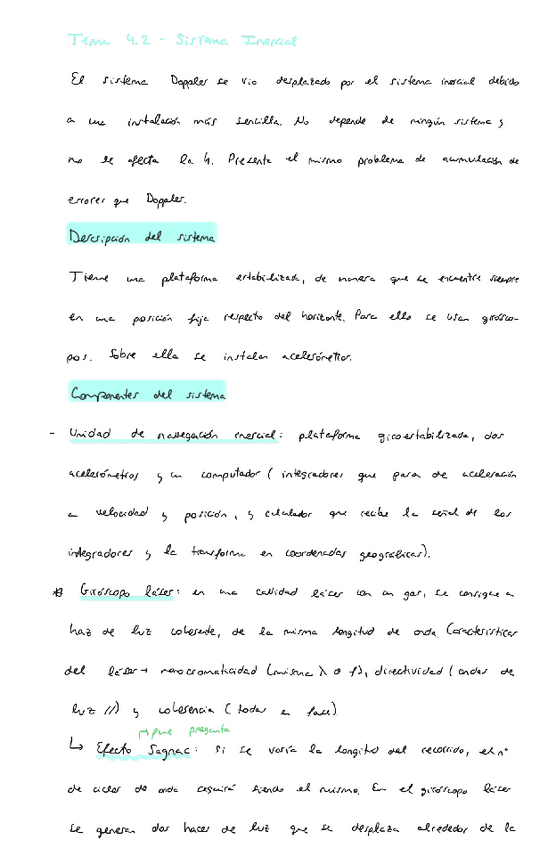 Tema 4.2 - Sistema Inercial
El sistema Doppler se vio desplazado por el sistema inercial debido
a una instalación más sencilla. No depende de ningún sistema y
no le afecta la h. Presenta el mismo problema de acumulación de
errores que Doppler.
Descripción del sistema
Tiene una plataforma estabilizada, de manera que se encuentre siempre
en una posición fija respecto del horizonte. Para ello se usan girósco-
pos. Sobre ella se instalan acelerómetros.
Componentes del sistema
- Unidad de navegación inercial: plataforma giroestabilizada, dos
acelerómetros y un computador (integradores que pasa de aceleración
a velocidad y posición, y calculador que recibe la señal de los
integradores y la transforma en coordenadas geográficas).
* Giróscopo láser: en una cavidad láser con un gas, se consigue
haz de luz coherente, de la misma longitud de onda. Características
del láser → monocromaticidad (misma λ o f), directividad (ondas de
luz //) y coherencia (todas en fase)
→ que pregunta
↳ Efecto Sagnac: si se varía la longitud del recorrido, el nº
de ciclos de onda seguirá siendo el mismo. En el giróscopo láser
se generan dos haces de luz que se desplaza alrededor de la